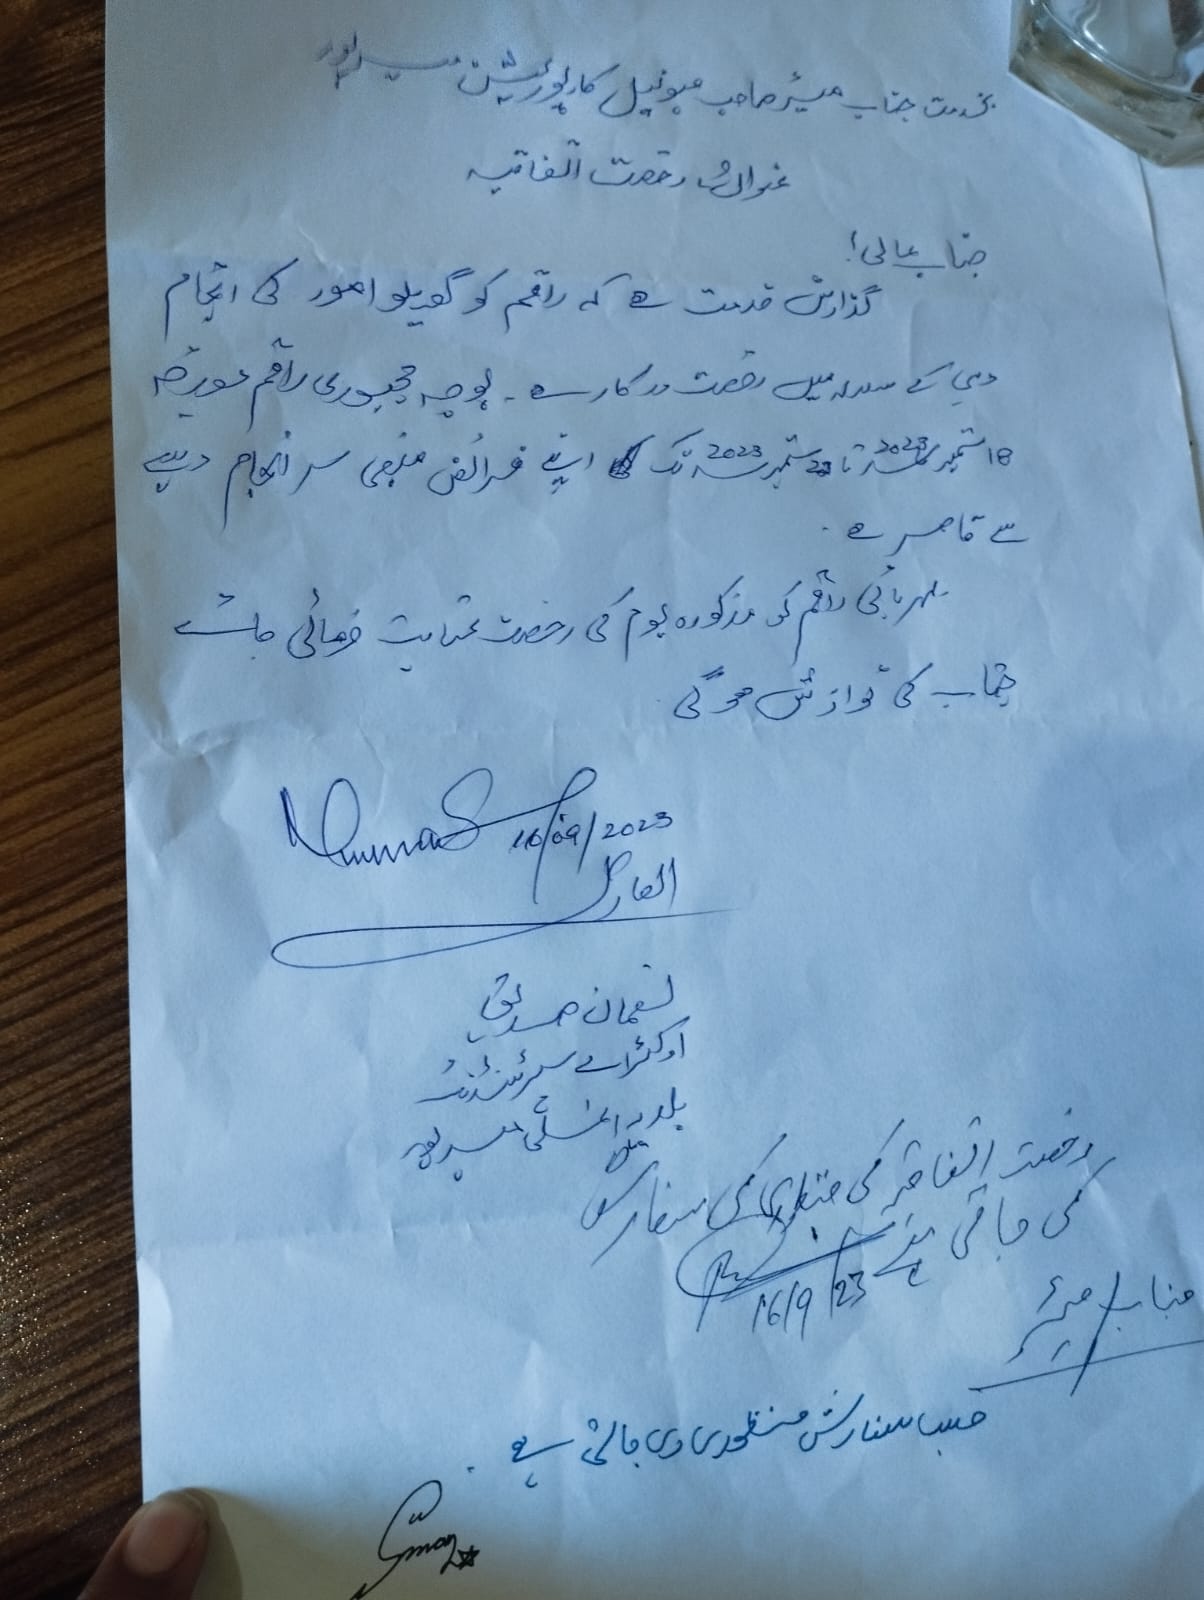 بخدمت جناب میئر صاحب میونسپل کارپوریشن میرپور
عنوان: رخصت اتفاقیہ
جناب عالی!
گذارش خدمت ہے کہ راقم کو گھریلو امور کی انجام
دہی کے سلسلہ میں رخصت درکار ہے۔ بوجہ مجبوری راقم مورخہ
18 ستمبر 2023 تا ستمبر 2023 تک اپنے فرائض منصبی سرانجام دینے
سے قاصر ہے۔
مہربانی راقم کو مذکورہ یوم کی رخصت عنایت فرمائی جائے
جناب کی نوازش ہوگی
16/09/2023
العارض
نعمان صدیقی
اوکٹرائے سپرنٹنڈنٹ
بلدیہ اعلیٰ میرپور
رخصت اتفاقیہ کی منظوری کی سفارش
کی جاتی ہے
16/9/23
جناب میئر
حسب سفارش منظوری دی جاتی ہے۔